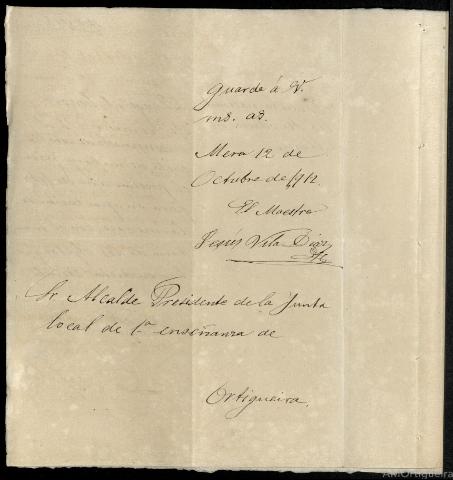 guarde á V.
ms. as.
Mera 12 de
Octubre de 1912.
El Maestro
Jesús Vila Díaz
Sr Alcalde Presidente de la Junta
local de 1ª enseñanza de
Ortigueira.
A.M.Ortigueira